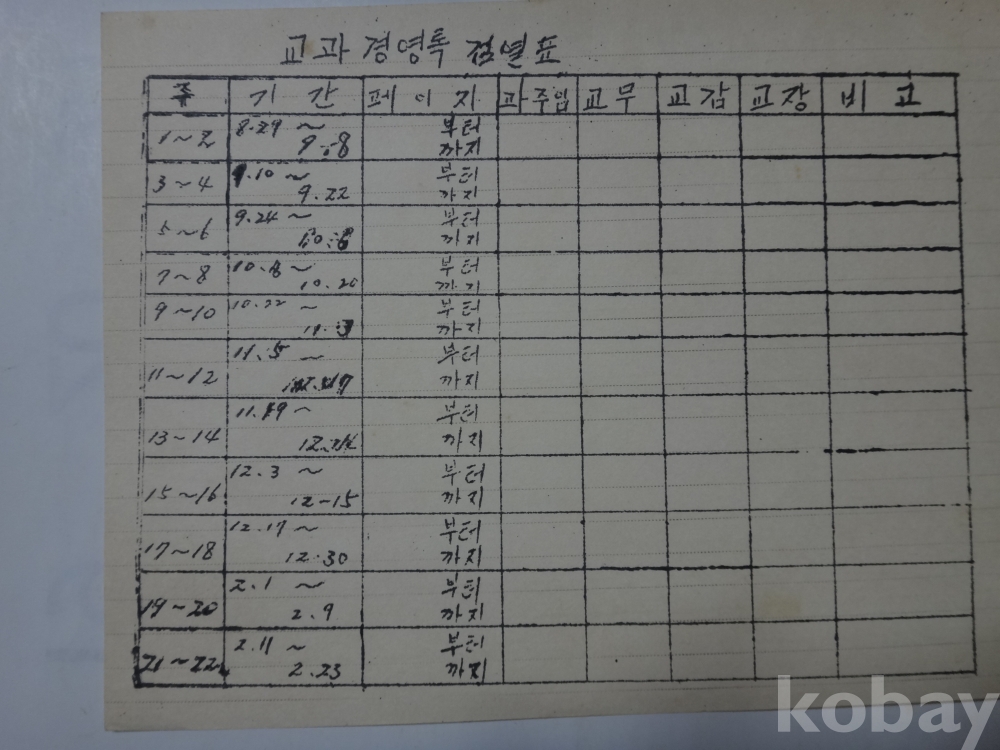 교과 경영록 검열표
주 기간 페이지 과주임 교무 교감 교장 비고
1~2 8.29 ~ 9.8 부터 까지
3~4 9.10 ~ 9.22 부터 까지
5~6 9.24 ~ 10.6 부터 까지
7~8 10.8 ~ 10.20 부터 까지
9~10 10.22 ~ 11.3 부터 까지
11~12 11.5 ~ 부터 까지
13~14 11.19 ~ 부터 까지
15~16 12.3 ~ 12-15 부터 까지
17~18 12.17 ~ 12.30 부터 까지
19~20 2.1 ~ 2.9 부터 까지
21~22 2.11 ~ 2.23 부터 까지
kobay